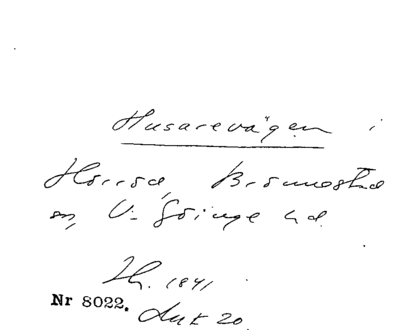 Husarevägen i
Hörröd, Brönnestad
sn, V. Göinge hd.
Th. 1841
Nr 8022.
Duk 20.